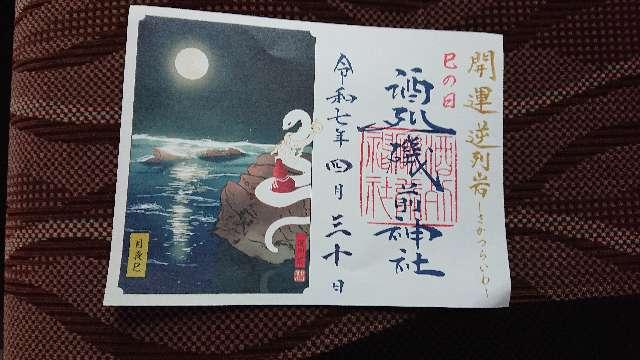 開運逆列岩
~さかつらいわ~
巳の日
酒列磯前神社
令和七年四月三十日
月夜巳